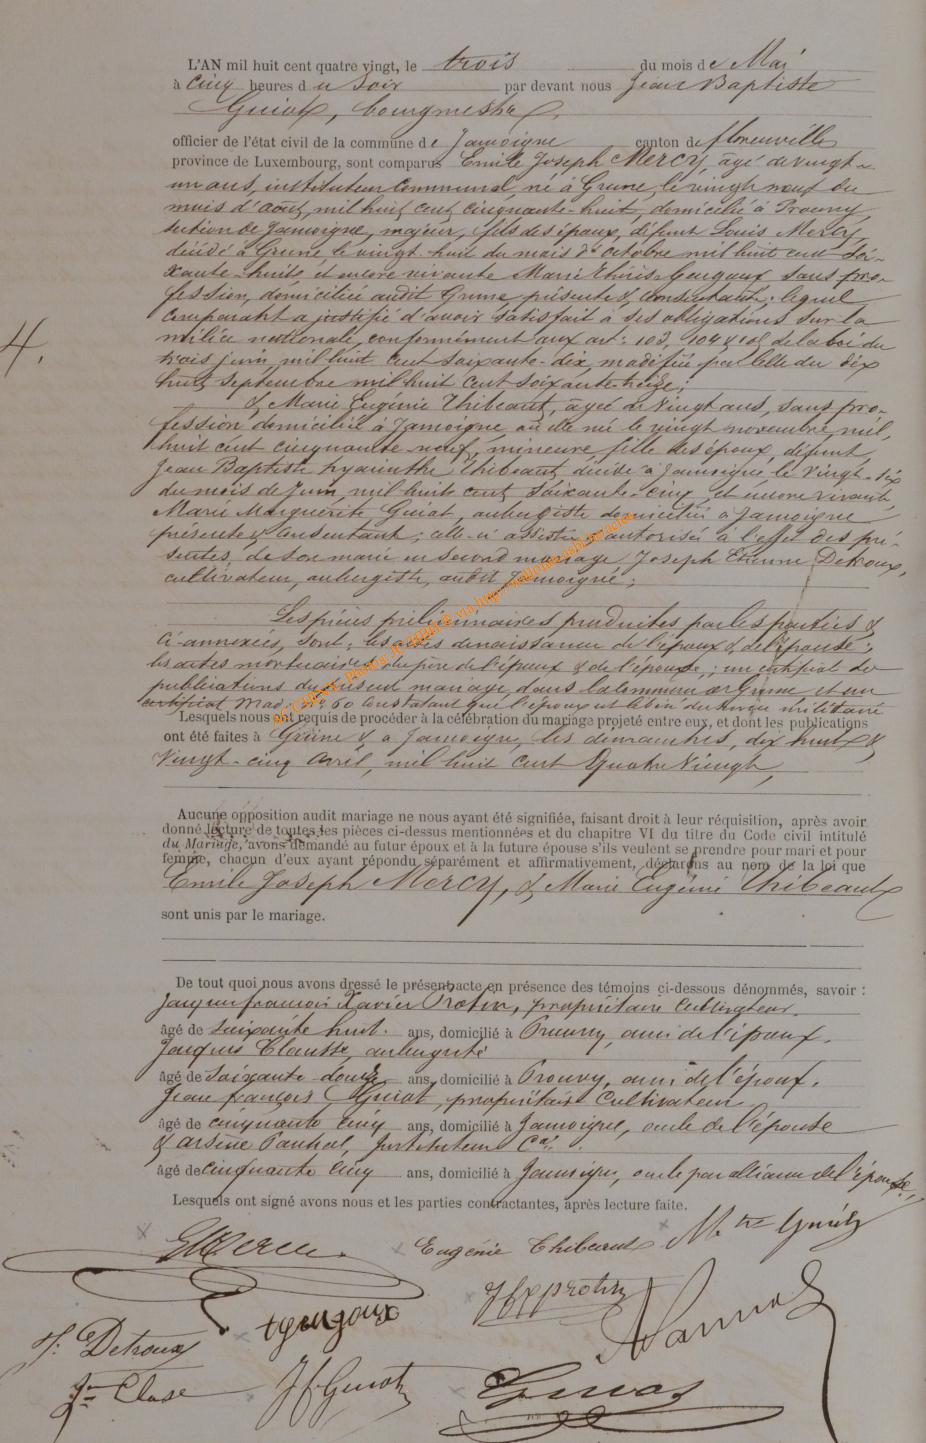 L'AN mil huit cent quatre vingt, le trois du mois de Mai
à cinq heures du soir par devant nous Jean Baptiste
Guiot, bourgmestre,
officier de l'état civil de la commune de Jamoigne canton de florenville
province de Luxembourg, sont comparus Emile Joseph Mercy, âgé de vingt-
un ans, instituteur communal, né à Grune, le vingt neuf du
mois d'août, mil huit cent cinquante-huit, domicilié à Prouvy,
section de Jamoigne, majeur, fils des époux, défunt Louis Mercy
décédé à Grune le vingt-huit du mois d'octobre mil huit cent soi-
xante-huit et encore vivante Marie Thérèse Gougoux sans pro-
fession, domiciliée audit Grune présente & consentante; lequel
comparant a justifié d'avoir satisfait à ses obligations sur la
milice nationale, conformément aux art: 103, 104 & de la loi du
trois juin, mil huit cent soixante-dix, modifiée par celle du dix
huit septembre mil huit cent soixante treize;
& Marie Eugénie Thibeaut, âgée de vingt ans, sans pro-
fession domiciliée à Jamoigne où elle née le vingt novembre, mil,
huit cent cinquante-neuf, mineure, fille des époux, défunt
Jean Baptiste hyacinthe Thibeaut, décédé à Jamoigne le vingt-six
du mois de Juin, mil huit cent soixante-cinq, et encore vivante,
Marie Marguerite Guiot, aubergiste domiciliée à Jamoigne
présente & consentant; celle-ci assistée & autorisée à l'effet des pré-
sentes, de son mari en second mariage Joseph Etienne Detroux,
cultivateur, aubergiste, audit Jamoigne;
Les pièces préliminaires produites par les parties &
ci-annexées, sont: les actes de naissance de l'époux & de l'épouse;
les actes mortuaires du père de l'époux & de l'épouse; un certificat de
publications du présent mariage, dans la commune de Grune et un
certificat Mod. N° 60 constatant que l'époux est libre du service militaire
Lesquels nous ont requis de procéder à la célébration du mariage projeté entre eux, et dont les publications
ont été faites à Grüne & à Jamoigne, les dimanches, dix huit &
vingt-cinq avril, mil huit cent quatre vingt,
Aucune opposition audit mariage ne nous ayant été signifiée, faisant droit à leur réquisition, après avoir
donné lecture de toutes les pièces ci-dessus mentionnées et du chapitre VI du titre du Code civil intitulé
du Mariage, avons demandé au futur époux et à la future épouse s'ils veulent se prendre pour mari et pour
femme, chacun d'eux ayant répondu séparément et affirmativement, déclarons au nom de la loi que
Emile Joseph Mercy, & Marie Eugénie Thibeaut
sont unis par le mariage.
De tout quoi nous avons dressé le présent acte en présence des témoins ci-dessous dénommés, savoir :
Jacques françois Xavier Protin, propriétaire cultivateur.
âgé de soixante huit. ans, domicilié à Prouvy, ami de l'époux.
Jacques Clausse, aubergiste
âgé de soixante douze ans, domicilié à Prouvy, ami de l'époux.
Jean françois Guiot, propriétaire cultivateur
âgé de cinquante cinq ans, domicilié à Jamoigne, oncle de l'épouse
& arsène Instituteur Cal.
âgé de cinquante cinq ans, domicilié à Jamoigne, oncle par alliance de l'épouse.
Lesquels ont signé avons nous et les parties contractantes, après lecture faite.
E Mercy. Eugénie Thibeaut M. te Guiot
t gougoux J f x protin
J: Detroux
Jn Clase J f Guiot Guiot
4.